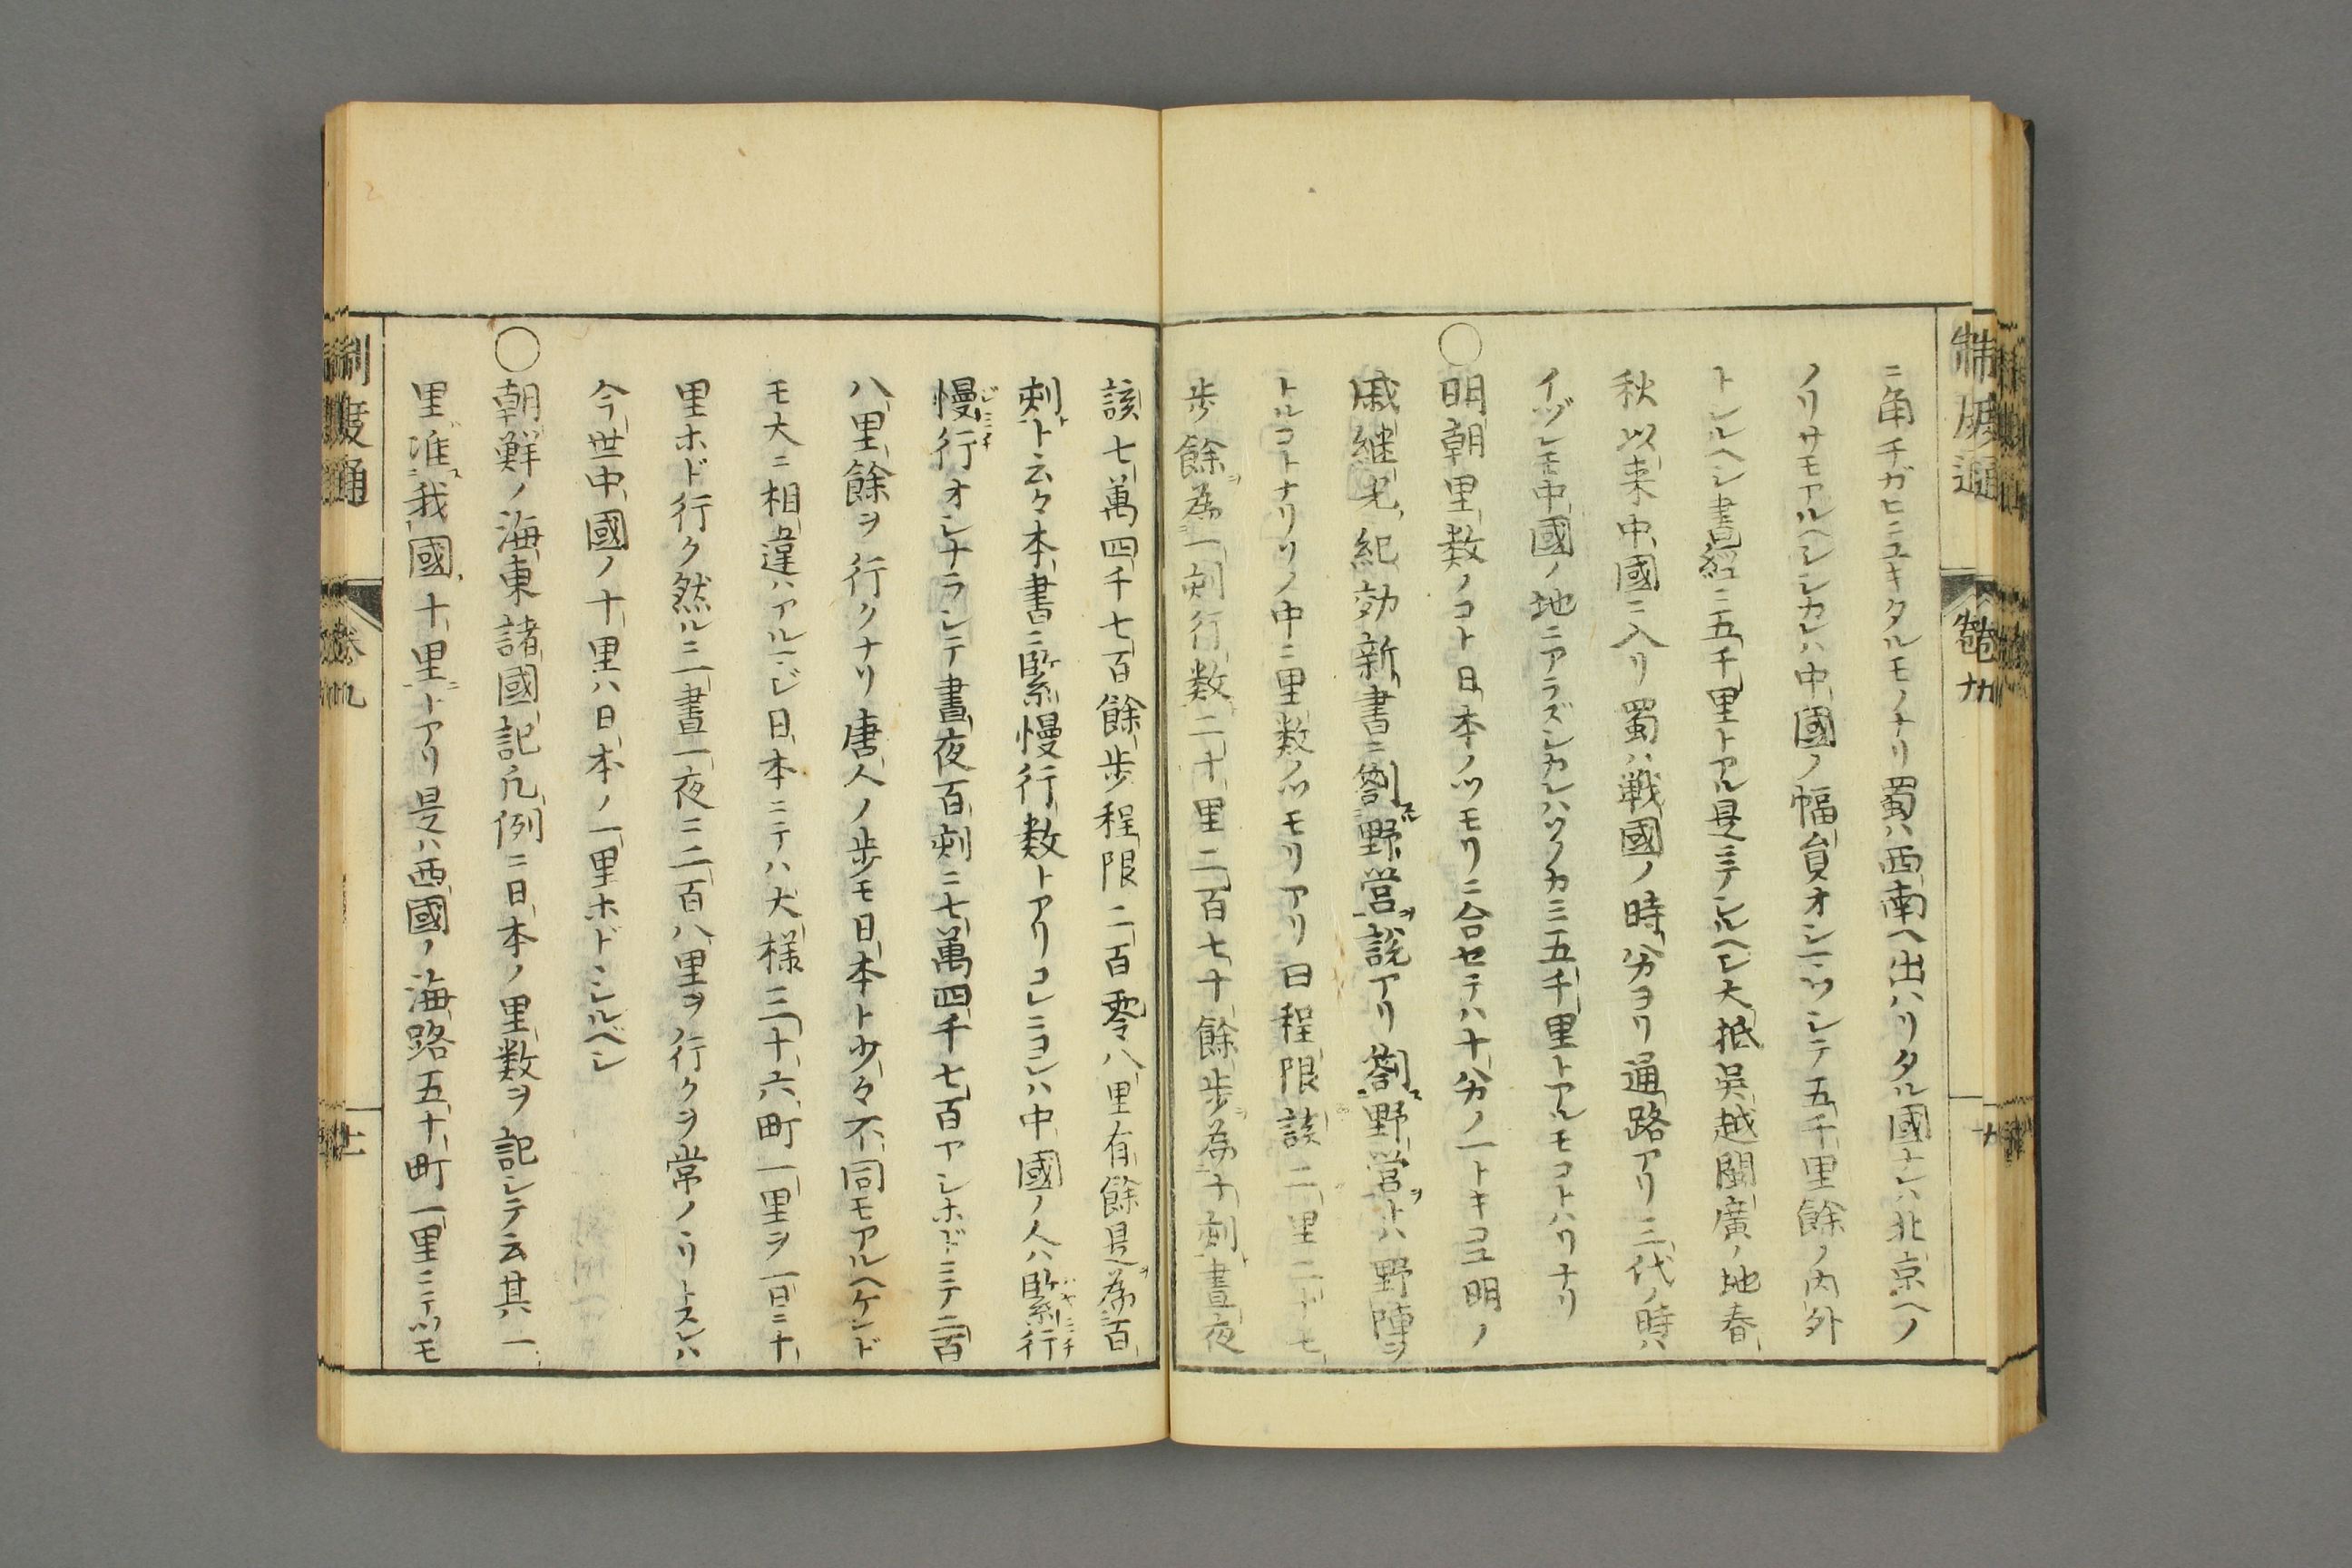 制度通
卷九
ニ角チガヒニユキタルモノナリ蜀ハ西南ヘ出ハリタル國ナレハ北京ヘノ
ノリサモアルヘシシカレハ中國ノ幅員オシマハシテ五千里餘ノ内外
トシルヘシ書經ニ五千里トアル是ニテシルヘシ大抵吳越閩廣ノ地春
秋以来中國ニ入リ蜀ハ戦國ノ時分ヨリ通路アリ三代ノ時ハ
イヅレモ中國ノ地ニアラズシカレハワツカニ五千里トアルモコトハリナリ
○明朝里数ノコト日本ノツモリニ合セテハ十分ノ一トキコユ明ノ
戚継光紀効新書ニ劄野営ヲ說アリ劄野営トハ野陣ヲ
トルコトナリソノ中ニ里数ノツモリアリ日程限該二里二十七
歩餘為一刻行数二十里二百七十餘歩為十刻晝夜
該七萬四千七百餘歩程限二百零八里有餘是為百
刻ト云々本書ニ緊慢行数トアリコレニヨレハ中國ノ人ハ緊行
慢行オシナラシテ晝夜百刻ニ七萬四千七百アシホドニテ二百
八里餘ヲ行クナリ唐人ノ歩モ日本ト少々不同モアルヘケンド
モ大ニ相違ハアルマジ日本ニテハ大様三十六町一里ヲ一日ニ十
里ホド行ク然ルニ一晝一夜ニ二百八里ヲ行クヲ常ノリトスレハ
今世中國ノ十里ハ日本ノ一里ホドトシルベシ
○朝鮮ノ海東諸國記凡例ニ日本ノ里数ヲ記シテ云其一
里准我國十里トアリ是ハ西國ノ海路五十町一里ニテツモ
制度通
卷九
十一